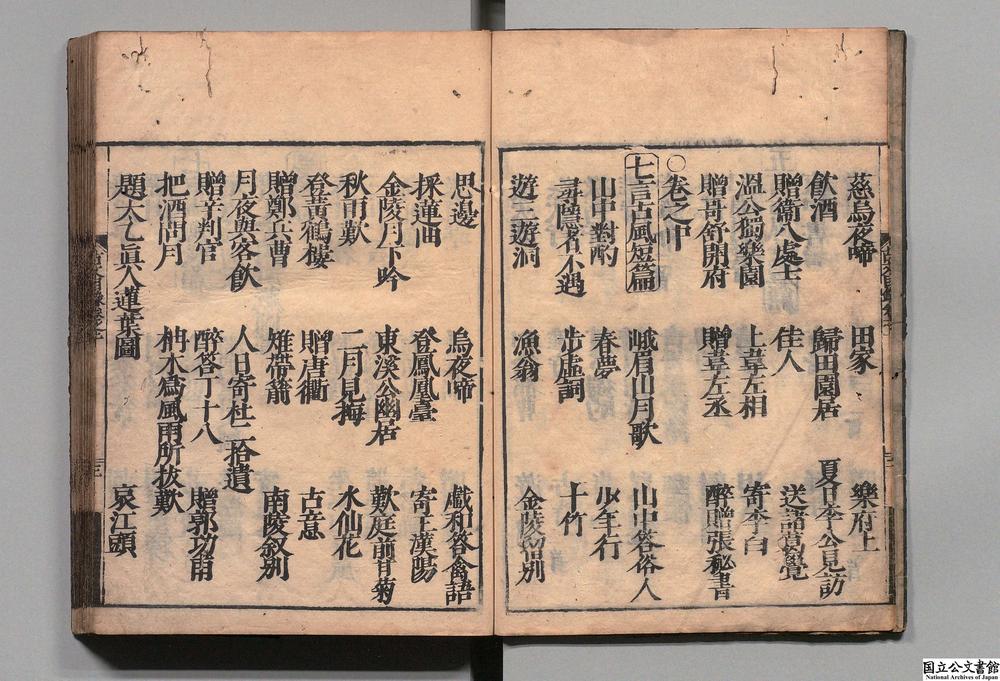 慈烏夜啼 田家 樂府上
飲酒 歸田園居 夏日李公見訪
贈衛八處士 佳人 送諸葛覺
溫公獨樂園 上韋左相 寄李白
贈哥舒開府 贈韋左丞 醉贈張秘書
○卷之中
七言古風短篇 峨眉山月歌 山中答俗人
山中對酌 春夢 少年行
尋隱者不遇 步虛詞 十竹
遊三遊洞 漁翁 金陵留別
思邊 烏夜啼 戲和答禽語
採蓮曲 登鳳凰臺 寄王漢陽
金陵月下吟 東溪公幽居 歎庭前甘菊
秋雨歎 二月見梅 水仙花
登黃鶴樓 贈唐衢 古意
贈鄭兵曹 雉帶箭 南陵敘別
月夜與客飲 人日寄杜二拾遺
贈辛判官 醉答丁十八 贈郭功甫
把酒問月 柟木為風雨所拔歎
題太乙真人蓮葉圖 哀江頭
国立公文書館
National Archives of Japan